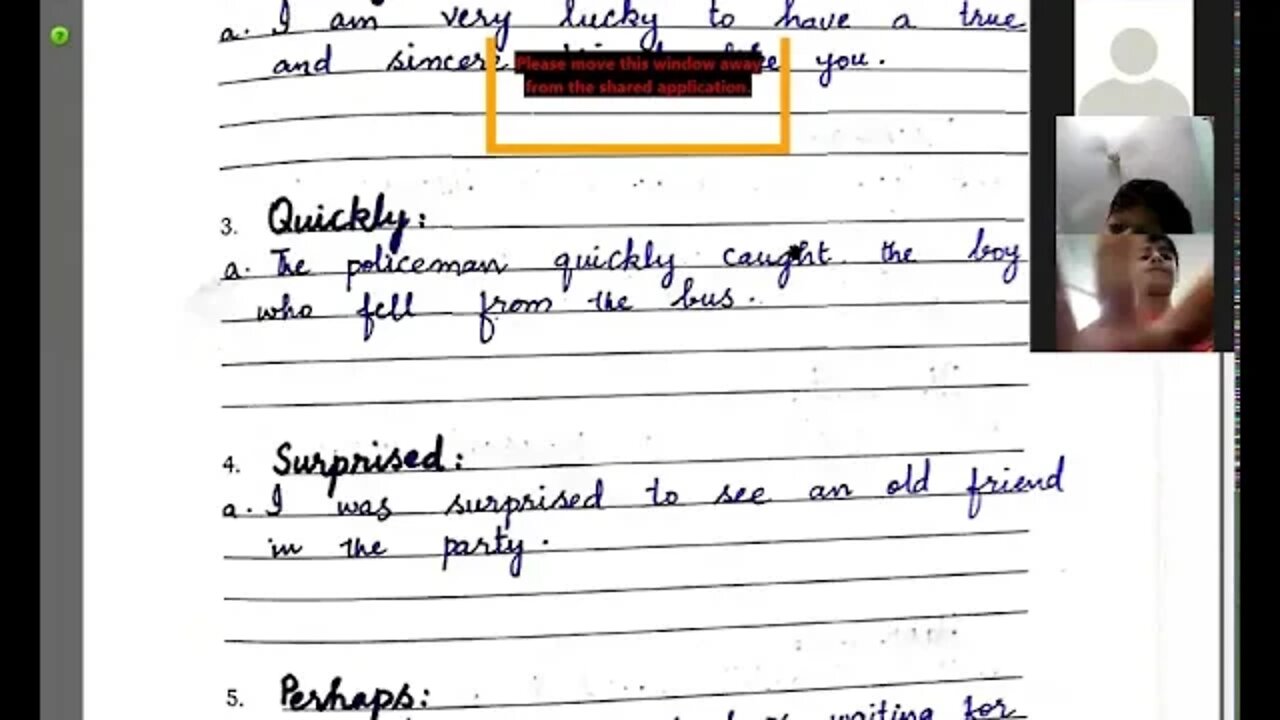 a. I am very lucky to have a true
and sincere you.
Please move this window away
from the shared application.
3. Quickly:
a. The policeman quickly caught the boy
who fell from the bus.
4. Surprised:
a. I was surprised to see an old friend
in the party.
5. Perhaps:
waiting for